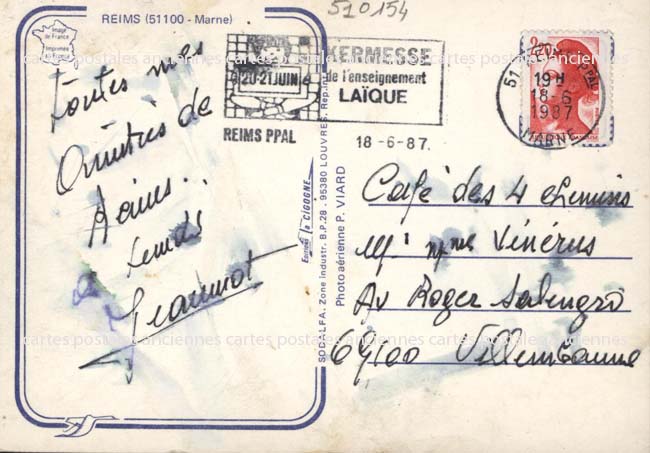 REIMS (51100 - Marne)
510154
Image
de France
Imprimée
Toutes mes
Amitiés de
Reims..
Jeannot
Editions la CIGOGNE
SOCALFA. Zone Industr. B.P.28 - 95380 LOUVRES. Rep.
Photo aérienne P. VIARD
20-21 JUIN
REIMS PPAL
KERMESSE
de l'enseignement
LAÏQUE
18-6-87.
2,20
51 REIMS PPAL
19H
18-6
1987
MARNE
Café des 4 chemins
Mr Mme Vénérus
Av Roger Salengro
69100 Villeurbanne
cartes postales anciennes cartes postales anciennes cartes postales anciennes